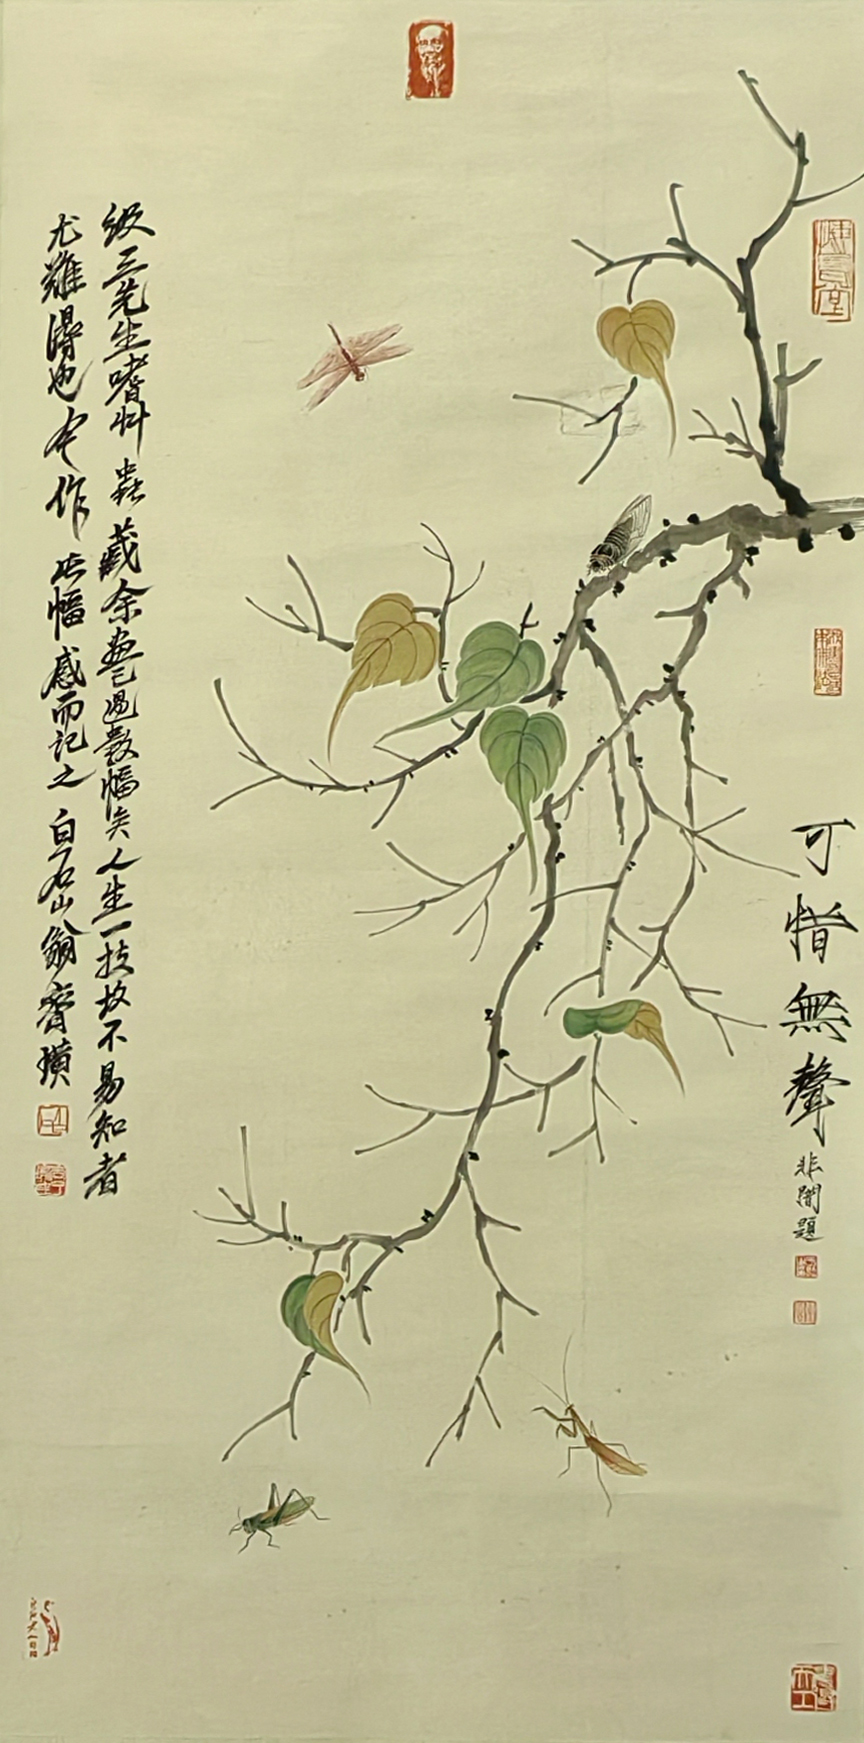 可惜無聲
非闇題
级三先生嗜艸蟲藏余畫已過數幅矣人生一技故不易知者
尤難得也今作此幅感而記之白石山翁齊璜